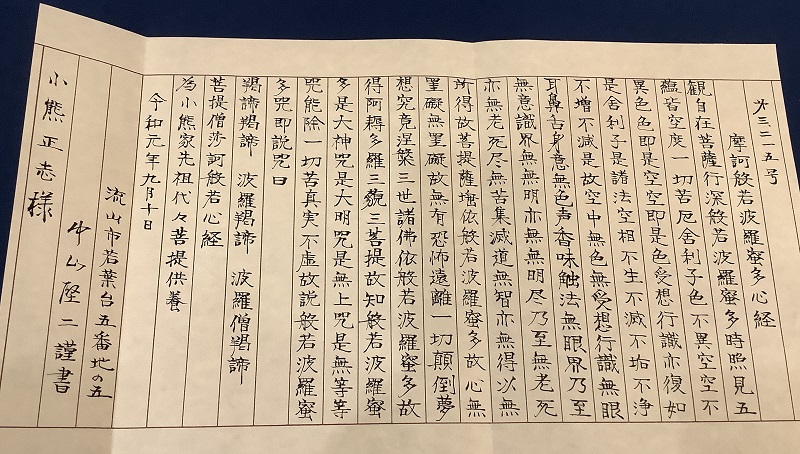 第三二一五号
摩訶般若波羅蜜多心経
観自在菩薩行深般若波羅蜜多時照見五
蘊皆空度一切苦厄舎利子色不異空空不
異色色即是空空即是色受想行識亦復如
是舎利子是諸法空相不生不滅不垢不浄
不増不減是故空中無色無受想行識無眼
耳鼻舌身意無色声香味触法無眼界乃至
無意識界無無明亦無無明尽乃至無老死
亦無老死尽無苦集滅道無智亦無得以無
所得故菩提薩埵依般若波羅蜜多故心無
罣礙無罣礙故無有恐怖遠離一切顛倒夢
想究竟涅槃三世諸佛依般若波羅蜜多故
得阿耨多羅三藐三菩提故知般若波羅蜜
多是大神咒是大明咒是無上咒是無等等
咒能除一切苦真実不虚故説般若波羅蜜
多咒即説咒曰
羯諦羯諦 波羅羯諦 波羅僧羯諦
菩提僧莎訶般若心経
為小熊家先祖代々菩提供養
令和元年九月十日
流山市若葉台五番地の五
山堅二謹書
小熊正志様